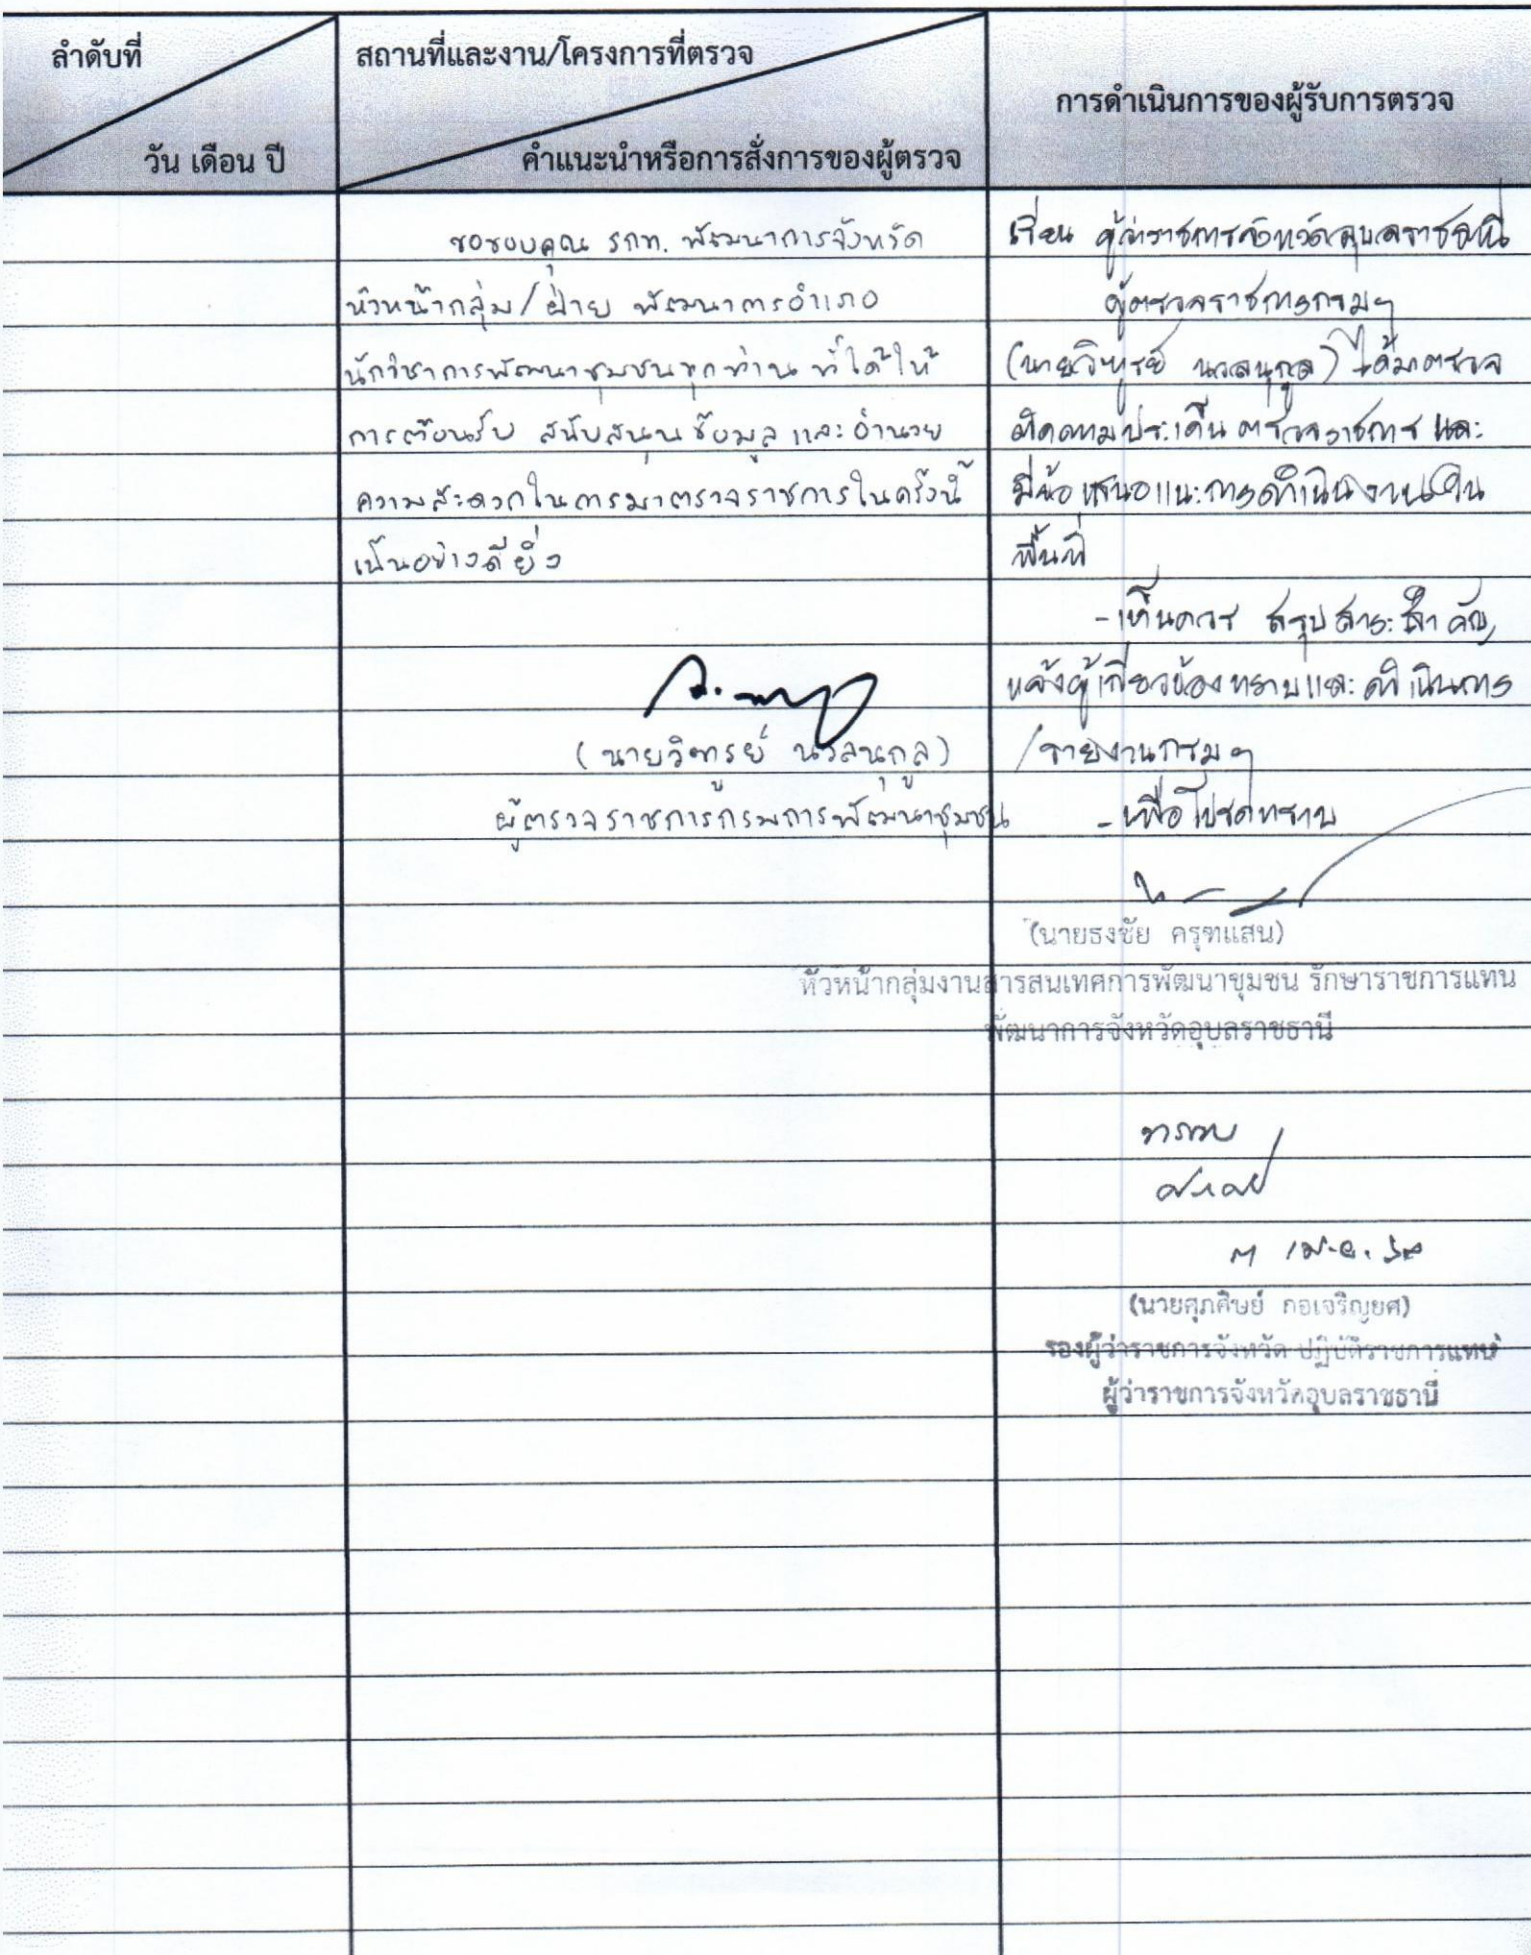 ลำดับที่
วัน เดือน ปี
สถานที่และงาน/โครงการที่ตรวจ
คำแนะนำหรือการสั่งการของผู้ตรวจ
การดำเนินการของผู้รับการตรวจ
ขอขอบคุณ รกท. พัฒนาการจังหวัด
หัวหน้ากลุ่ม/ฝ่าย พัฒนาการอำเภอ
นักวิชาการพัฒนาชุมชนทุกท่าน ที่ได้ให้
การต้อนรับ สนับสนุนข้อมูล และอำนวย
ความสะดวกในการมาตรวจราชการในครั้งนี้
เป็นอย่างดียิ่ง
(นายวิฑูรย์ นวลนุกูล)
ผู้ตรวจราชการกรมการพัฒนาชุมชน
เรียน ผู้ว่าราชการจังหวัดอุบลราชธานี
ผู้ตรวจราชการกรมฯ
(นายวิฑูรย์ นวลนุกูล) ได้มาตรวจ
ติดตามประเด็นตรวจราชการ และ
มีข้อเสนอแนะการดำเนินงานใน
พื้นที่
- เห็นควร สรุปสาระสำคัญ
แจ้งผู้เกี่ยวข้องทราบและดำเนินการ
/รายงานกรมฯ
- เพื่อโปรดทราบ
(นายธงชัย ครุฑแสน)
หัวหน้ากลุ่มงานสารสนเทศการพัฒนาชุมชน รักษาราชการแทน
พัฒนาการจังหวัดอุบลราชธานี
ทราบ
๓ เม.ย.
(นายศุภศิษย์ กอเจริญยศ)
รองผู้ว่าราชการจังหวัด ปฏิบัติราชการแทน
ผู้ว่าราชการจังหวัดอุบลราชธานี